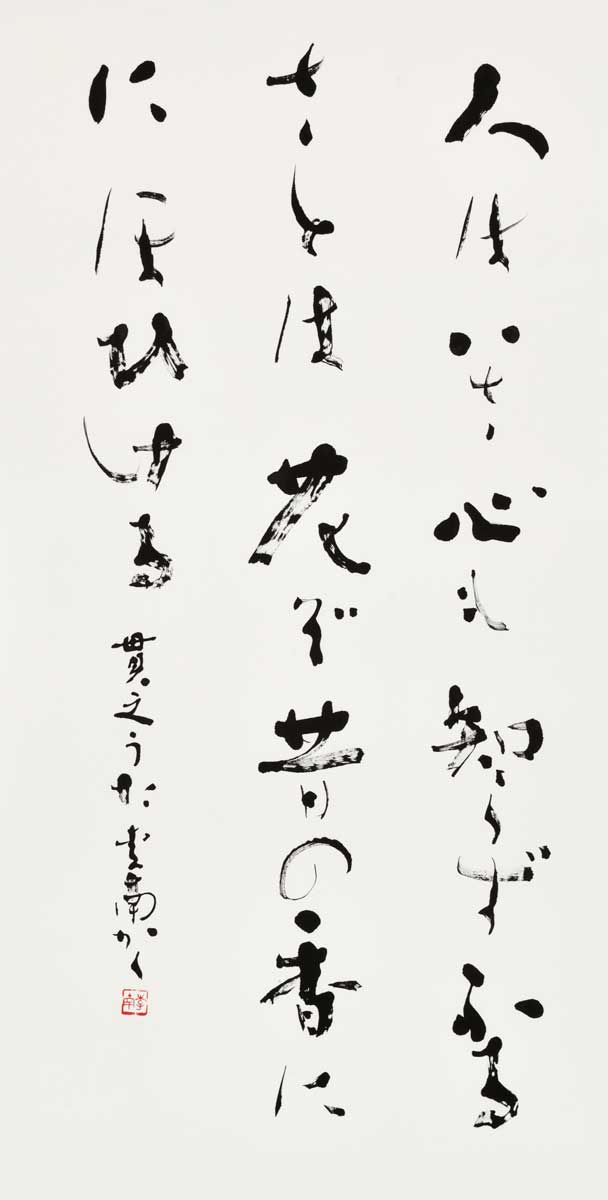 人はいさ心も知らずふる
さとは花ぞ昔の香に
にほひける 貫之うた かく